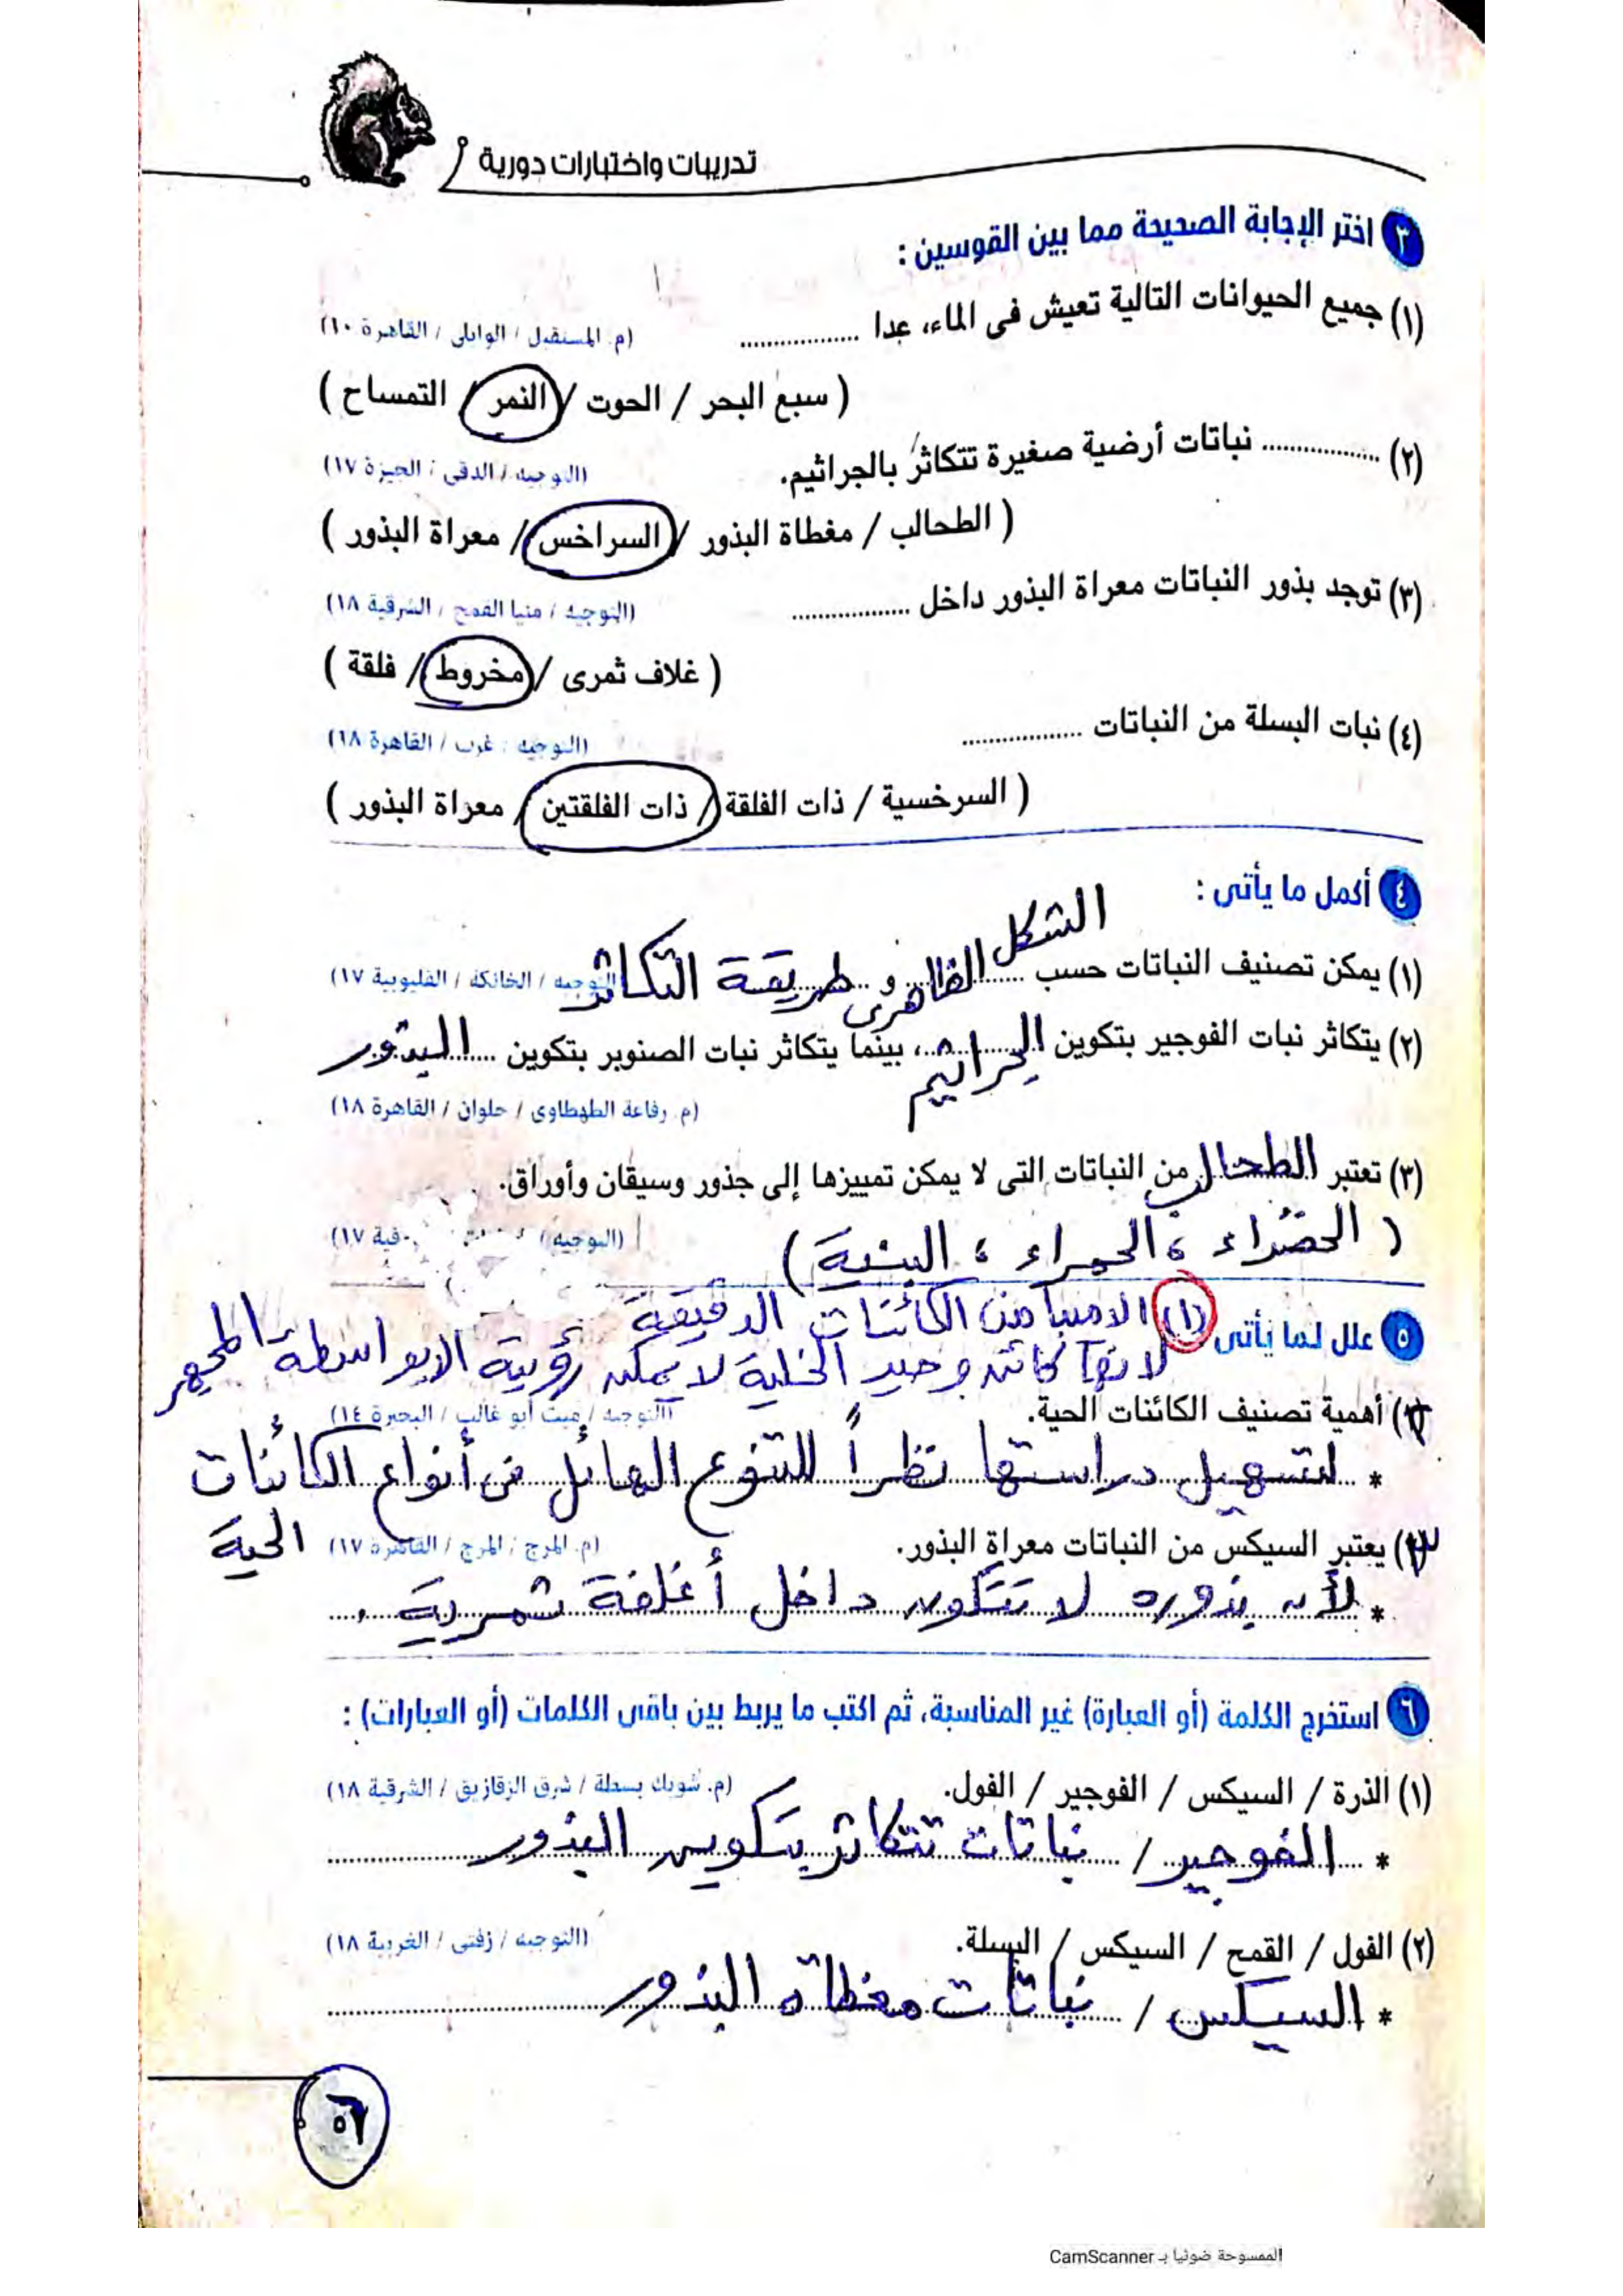 تدريبات واختبارات دورية
٣ اختر الإجابة الصحيحة مما بين القوسين :
(١) جميع الحيوانات التالية تعيش فى الماء، عدا .................. (م. المستقبل / الوايلى / القاهرة ١٠)
( سبع البحر / الحوت / النمر / التمساح )
(٢) .................. نباتات أرضية صغيرة تتكاثر بالجراثيم. (التوجيه / الدقى / الجيزة ١٧)
( الطحالب / مغطاة البذور / السراخس / معراة البذور )
(٣) توجد بذور النباتات معراة البذور داخل .................. (التوجيه / منيا القمح / الشرقية ١٨)
( غلاف ثمرى / مخروط / فلقة )
(٤) نبات البسلة من النباتات .................. (التوجيه / غرب / القاهرة ١٨)
( السرخسية / ذات الفلقة / ذات الفلقتين / معراة البذور )
٤ أكمل ما يأتى :
(١) يمكن تصنيف النباتات حسب الشكل الظاهرى و طريقة التكاثر (التوجيه / الخانكة / القليوبية ١٧)
(٢) يتكاثر نبات الفوجير بتكوين الجراثيم، بينما يتكاثر نبات الصنوبر بتكوين البذور
(م. رفاعة الطهطاوى / حلوان / القاهرة ١٨)
(٣) تعتبر الطحالب من النباتات التى لا يمكن تمييزها إلى جذور وسيقان وأوراق.
( الخضراء ، الحمراء ، البنية ) (التوجيه /
٥ علل لما يأتى (١) الاميبا من الكائنات الدقيقة
لانها كائن وحيد الخلية لا يمكن رؤيية الا بواسطة المجهر
(٢) أهمية تصنيف الكائنات الحية. (التوجيه / ميت أبو غالب / البحيرة ١٤)
* لتسهيل دراستها نظراً للتنوع الهائل فى أنواع الكائنات
الحية
(٣) يعتبر السيكس من النباتات معراة البذور. (م. المرج / المرج / القاهرة ١٧)
* لأن بذوره لا تتكون داخل أغلفة ثمرية .
٦ استخرج الكلمة (أو العبارة) غير المناسبة، ثم اكتب ما يربط بين باقى الكلمات (أو العبارات) :
(١) الذرة / السيكس / الفوجير / الفول. (م. شوبك بسطة / شرق الزقازيق / الشرقية ١٨)
* الفوجير / نباتات تتكاثر بتكوين البذور
(٢) الفول / القمح / السيكس / البسلة. (التوجيه / زفتى / الغربية ١٨)
* السيكس / نباتات مغطاه البذور
الممسوحة ضوئيا بـ CamScanner